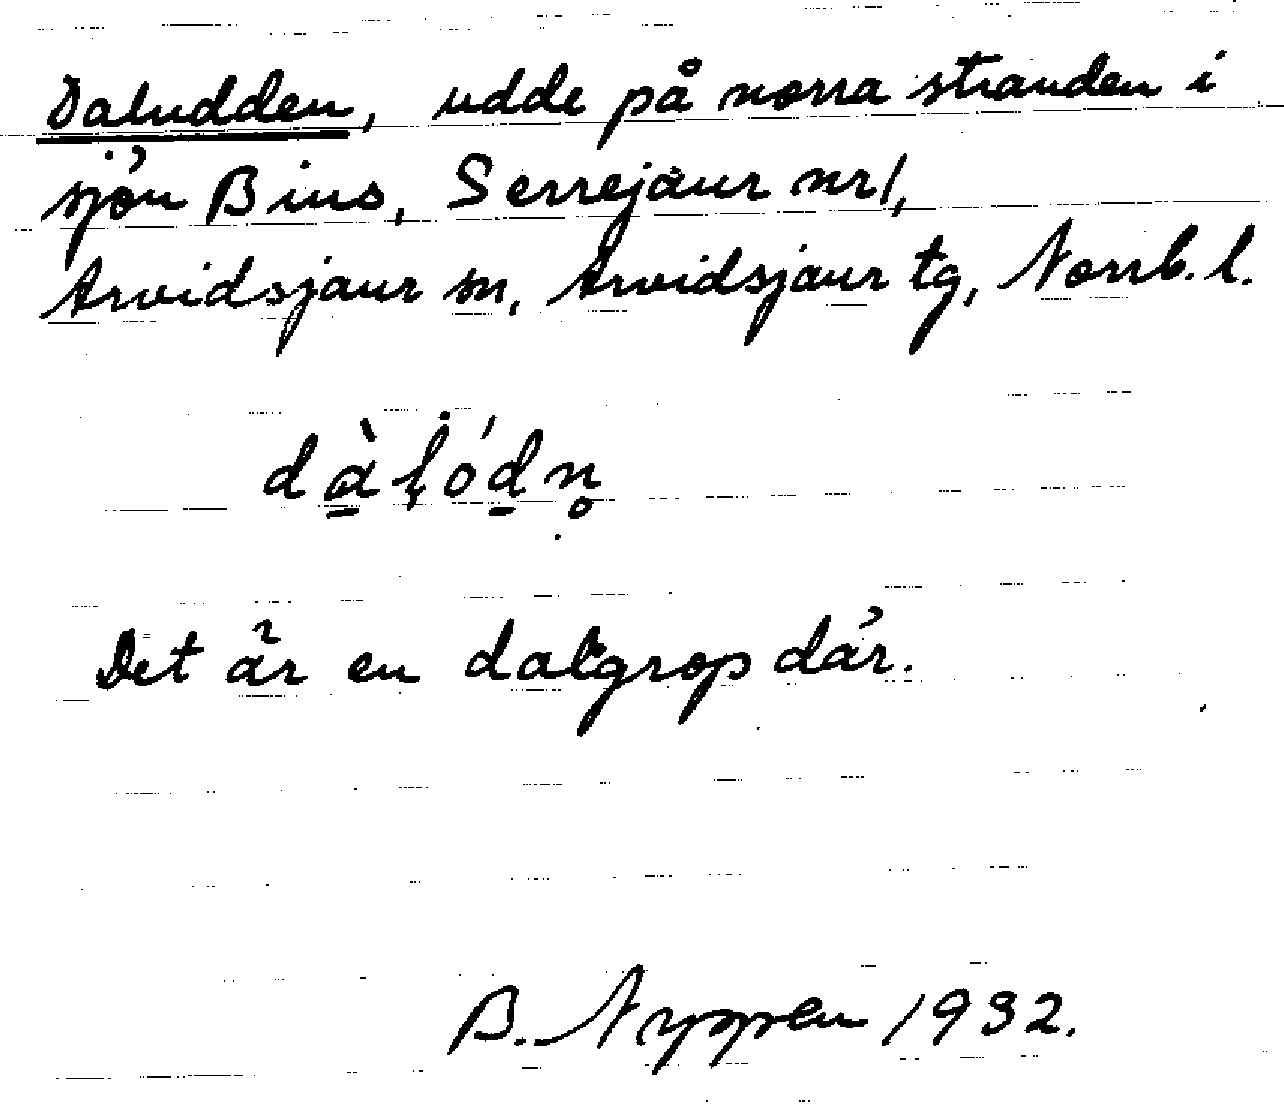 Daludden, udde på norra stranden i
sjön Bius, Serrejaur nr 1,
Arvidsjaur sn, Arvidsjaur tg, Norrb. l.
Det är en dalgrop där.
B. Nyppen 1932.